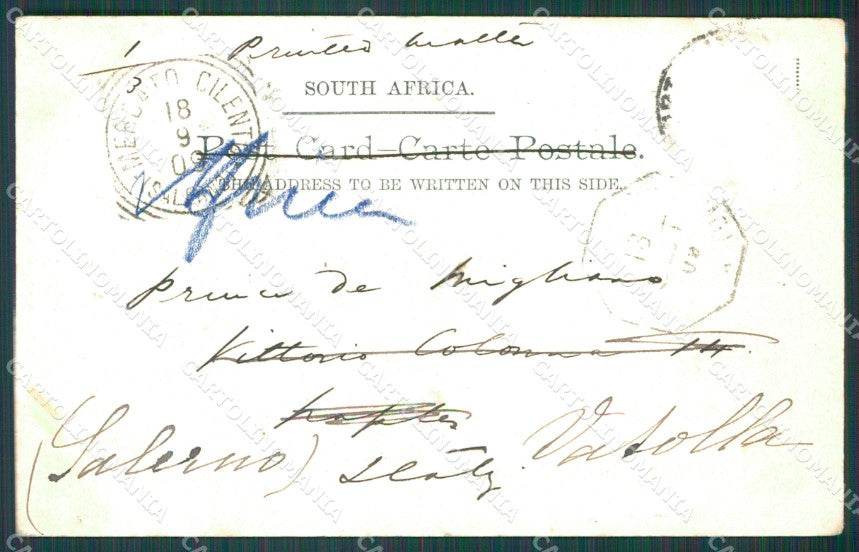 1 Printed matter
3
SOUTH AFRICA.
MERCATO CILENTO
18
9
09
Post Card–Carte Postale.
THE ADDRESS TO BE WRITTEN ON THIS SIDE.
13
09
Prince de Migliano
Vittorio Colonna 14.
Naples
(Salerno) Italy Vatolla
CARTOLINOMANIA